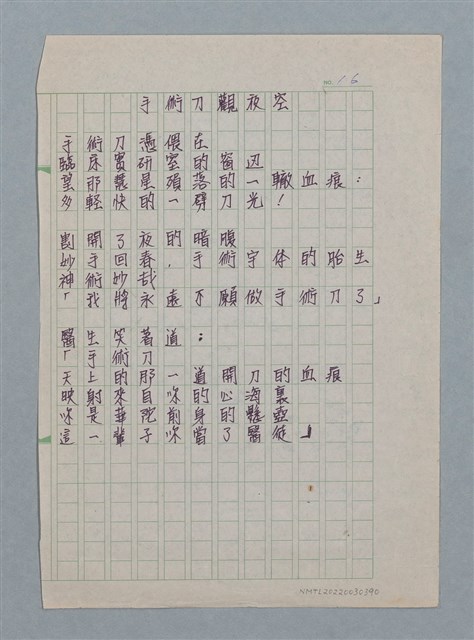 NO. 16
手術刀觀夜空
手術刀憑偎在
臨床實研室的窗边
望那慧星殞落的一轍血痕：
多輕快的一劈刀光！
剖開了夜的暗腹
妙手回春，手術宇体的胎生
神術妙哉
「我將永遠不願做手術刀了」
醫生笑著道：
「手術刀
天上的那一道開刀的血痕
映射來自你的心海裏
你是華陀削身的懸壺
這一輩子你當了醫徒」
NMTL20220030390